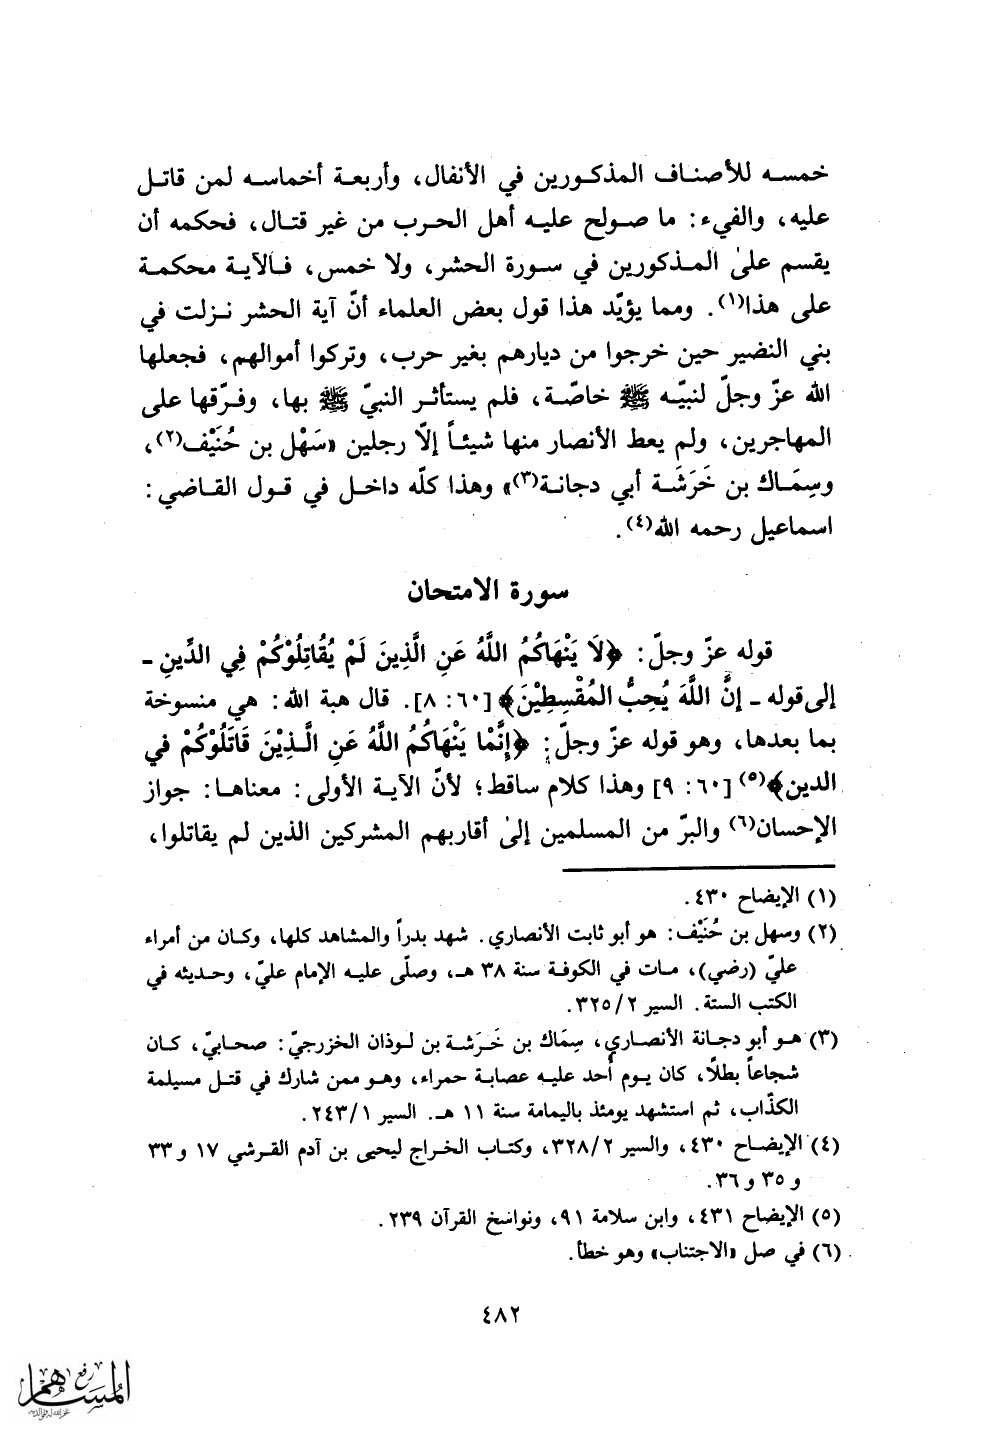 خمسه للأصناف المذكورين في الأنفال، وأربعة أخماسه لمن قاتل
عليه، والفيء: ما صولح عليه أهل الحرب من غير قتال، فحكمه أن
يقسم علىٰ المذكورين في سورة الحشر، ولا خمس، فالآية محكمة
على هذا(١). ومما يؤيّد هذا قول بعض العلماء أنّ آية الحشر نزلت في
بني النضير حين خرجوا من ديارهم بغير حرب، وتركوا أموالهم، فجعلها
الله عزّ وجلّ لنبيّه ﷺ خاصّة، فلم يستأثر النبيّ ﷺ بها، وفرّقها على
المهاجرين، ولم يعط الأنصار منها شيئاً إلّا رجلين «سَهْل بن حُنَيْف(٢)،
وسِمَاك بن خَرَشَة أبي دجانة(٣)» وهذا كلّه داخل في قول القاضي:
اسماعيل رحمه الله(٤).
سورة الامتحان
قوله عزّ وجلّ: ﴿لاَ يَنْهَاكُمُ اللَّهُ عَنِ الَّذِينَ لَمْ يُقَاتِلُوْكُمْ فِي الدِّينِ ـ
إلى قوله ـ إنَّ اللَّهَ يُحِبُّ المُقْسِطِيْنَ﴾ [٦٠: ٨]. قال هبة الله: هي منسوخة
بما بعدها، وهو قوله عزّ وجلّ: ﴿إنَّمْا يَنْهَاكُمُ اللَّهُ عَنِ الَّذِيْنَ قَاتَلُوْكُمْ في
الدين﴾(٥) [٦٠: ٩] وهذا كلام ساقط؛ لأنّ الآية الأولى: معناها: جواز
الإحسان(٦) والبرّ من المسلمين إلىٰ أقاربهم المشركين الذين لم يقاتلوا،
(١) الإيضاح ٤٣٠.
(٢) وسهل بن حُنَيْف: هو أبو ثابت الأنصاري. شهد بدراً والمشاهد كلها، وكان من أمراء
عليّ (رضي)، مات في الكوفة سنة ٣٨ هـ، وصلّى عليه الإمام عليّ، وحديثه في
الكتب الستة. السير ٢/ ٣٢٥.
(٣) هو أبو دجانة الأنصاري، سِمَاك بن خَرَشة بن لوذان الخزرجيّ: صحابيّ، كان
شجاعاً بطلًا، كان يوم أُحد عليه عصابة حمراء، وهو ممن شارك في قتل مسيلمة
الكذّاب، ثم استشهد يومئذ باليمامة سنة ١١ هـ. السير ١/ ٢٤٣.
(٤) الإيضاح ٤٣٠، والسير ٢/ ٣٢٨، وكتاب الخراج ليحيى بن آدم القرشي ١٧ و ٣٣
و ٣٥ و ٣٦.
(٥) الإيضاح ٤٣١، وابن سلامة ٩١، ونواسخ القرآن ٢٣٩.
(٦) في صل «الاجتناب» وهو خطأ.
٤٨٢
رفع
المساهم